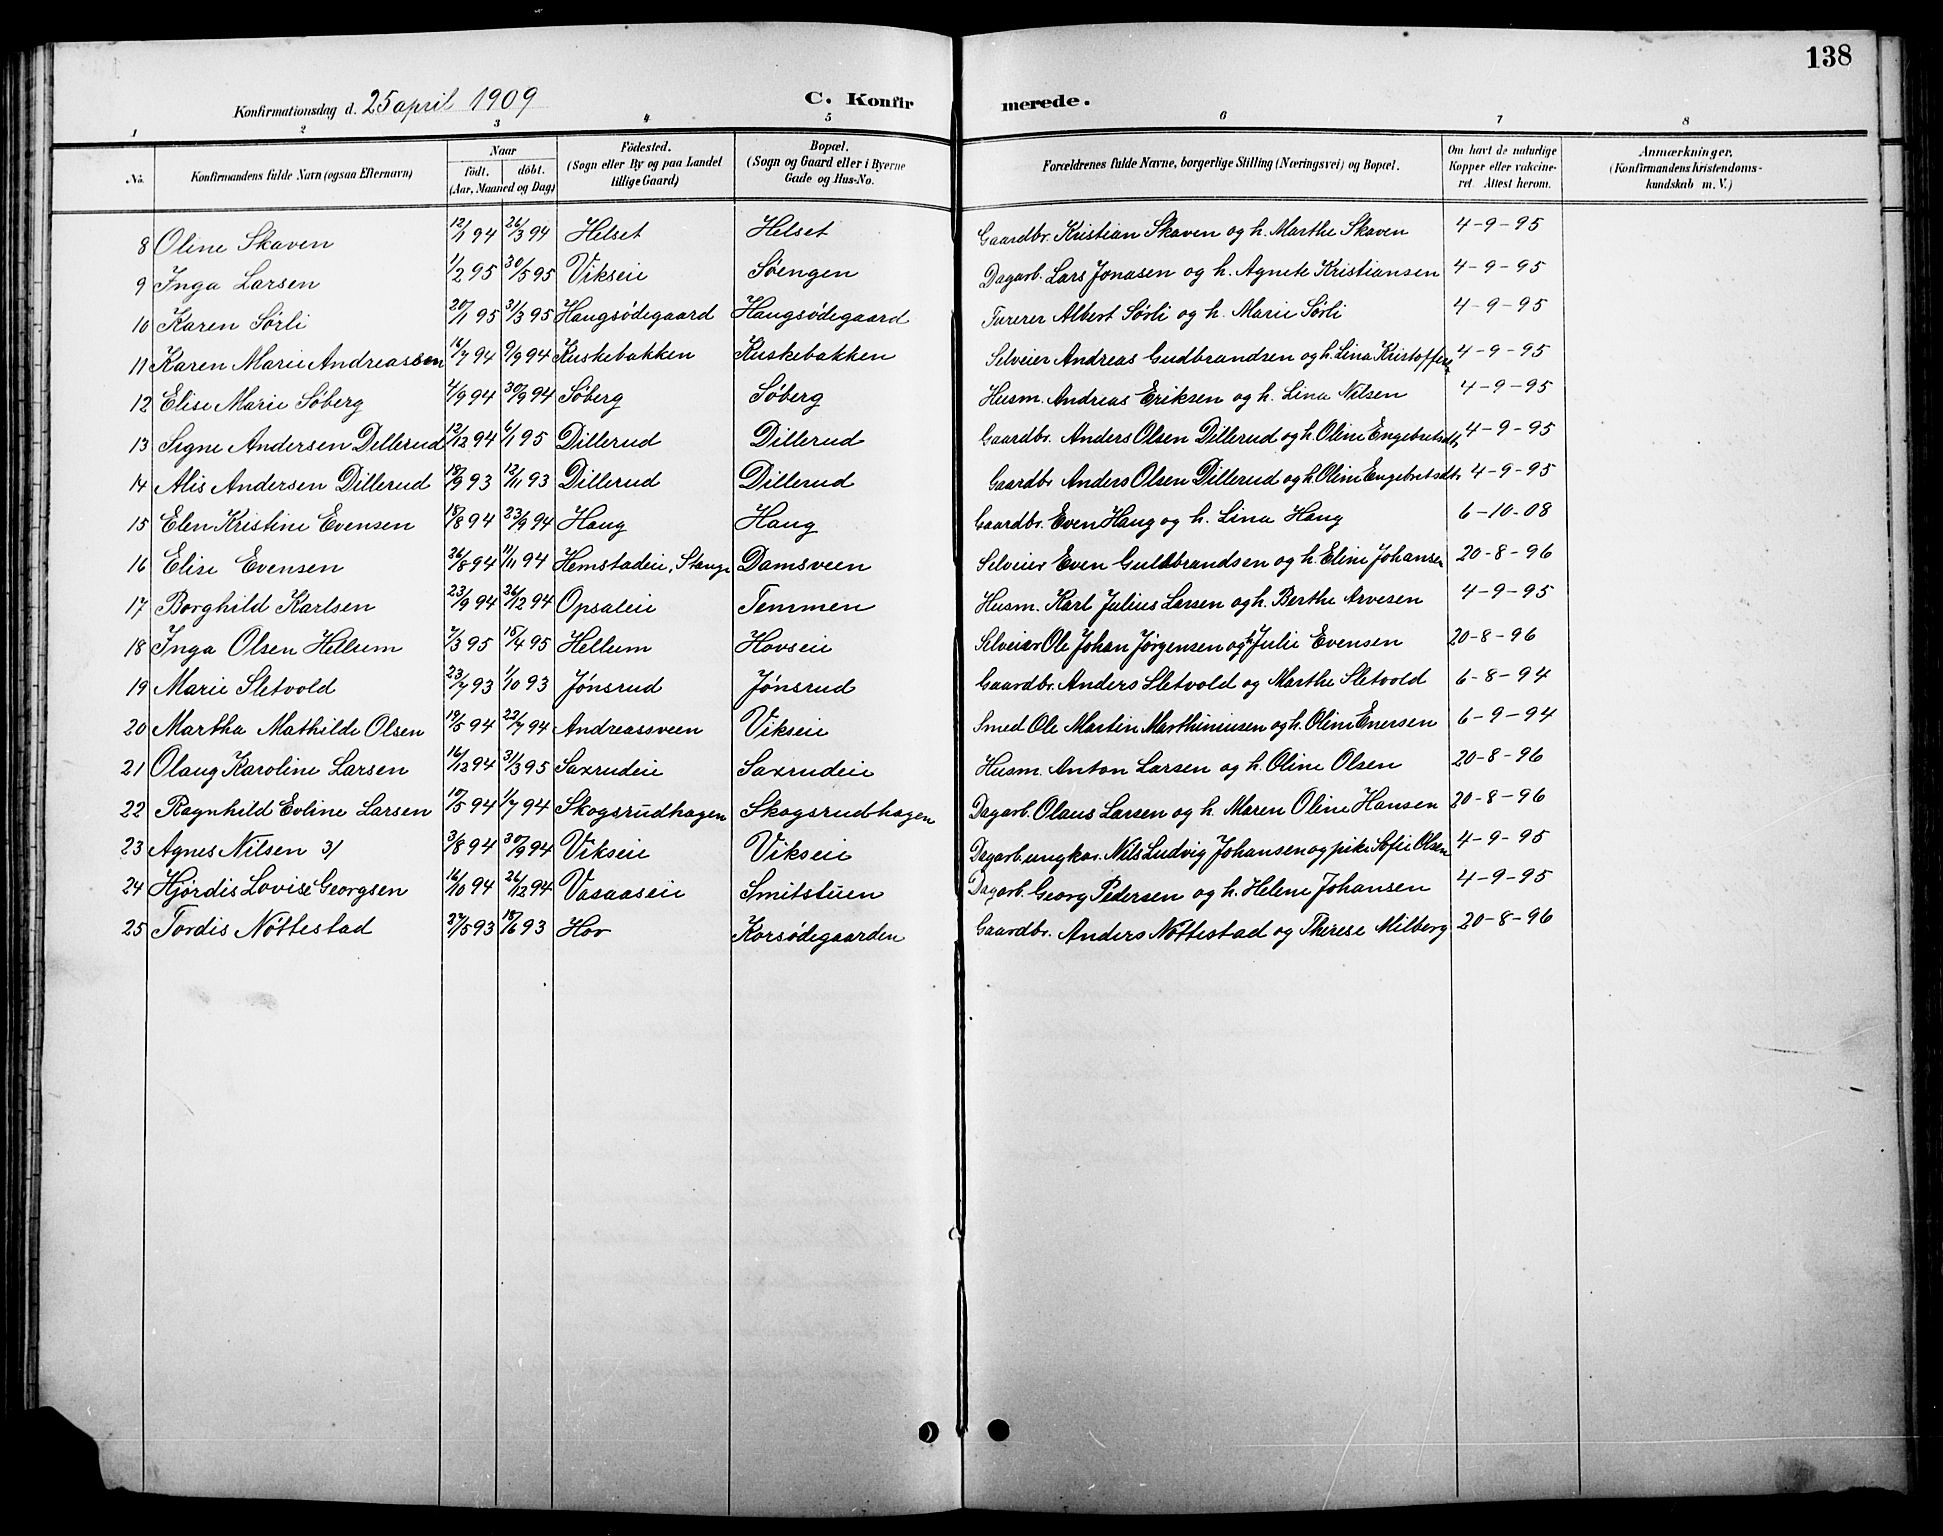 138
Konfirmationsdag d. 25 april 1909 C. Konfir merede.
1 2 3 4 5 6 7 8
No. Konfirmandens fulde Navn (ogsaa Efternavn) Naar födt. döbt. (Aar, Maaned og Dag) Födested. (Sogn eller By og paa Landet tillige Gaard) Bopæl. (Sogn og Gaard eller i Byerne Gade og Hus-No. Forældrenes fulde Navne, borgerlige Stilling (Næringsvei) og Bopæl. Om havt de naturlige Kopper eller vakcineret. Attest herom. Anmærkninger, (Konfirmandens Kristendomskundskab m. V.)
8 Oline Skaven 12/1 94 26/3 94 Helset Helset Gaardbr. Kristian Skaven og h. Marthe Skaven 4-9-95
9 Inga Larsen 1/2 95 30/5 95 Vikseie Soengen Dagarb. Lars Jonasen og h. Agnete Kristiansen 4-9-95
10 Karen Sørli 20/1 95 31/3 95 Haugsødegaard Haugsødegaard Furerer Albert Sørli og h. Marie Sørli 4-9-95
11 Karen Marie Andreassen 16/7 94 9/9 94 Kuskebakken Kuskebakken Selveier Andreas Gudbrandsen og h. Lina Kristoffers 4-9-95
12 Elise Marie Søberg 4/9 94 30/9 94 Søberg Søberg Husm. Andreas Eriksen og h. Lina Nilsen 4-9-95
13 Signe Andersen Dillerud 12/12 94 6/1 95 Dillerud Dillerud Gaardbr. Anders Olsen Dillerud og h. Oline Engebretsdtr. 4-9-95
14 Alis Andersen Dillerud 18/9 93 12/11 93 Dillerud Dillerud Gaardbr. Anders Olsen Dillerud og h. Oline Engebretsdtr. 4-9-95
15 Elen Kristine Evensen 18/8 94 23/9 94 Haug Haug Gaardbr. Even Haug og h. Lina Haug 6-10-08
16 Elise Evensen 26/8 94 11/11 94 Hemstadeie, Stange Damsveen Selveier Even Guldbrandsen og h. Eline Johansen 20-8-96
17 Borghild Karlsen 23/9 94 26/12 94 Opsaleie Temmen Husm. Karl Julius Larsen og h. Berthe Arvesen 4-9-95
18 Inga Olsen Hellum 7/3 95 15/4 95 Hellum Hovseie Selveier Ole Johan Jørgensen og h. Julie Evensen 20-8-96
19 Marie Sletvold 23/7 93 1/10 93 Jønsrud Jønsrud Gaardbr. Anders Sletvold og Marthe Sletvold 6-8-94
20 Martha Mathilde Olsen 19/5 94 22/7 94 Andreassveen Vikseie Smed Ole Martin Marthiniusen og h. Oline Enersen 6-9-94
21 Olaug Karoline Larsen 16/12 94 31/3 95 Saxrudeie Saxrudeie Husm. Anton Larsen og h. Oline Olsen 20-8-96
22 Ragnhild Evline Larsen 10/5 94 1/7 94 Skogsrudhagen Skogsrudhagen Dagarb. Olaus Larsen og h. Maren Oline Hansen 20-8-96
23 Agnes Nilsen 3/ 3/8 94 30/9 94 Vikseie Vikseie Dagarb. ungkar. Nils Ludvig Johansen og pike Sofie Olsen 4-9-95
24 Hjørdis Lovise Georgsen 16/10 94 26/12 94 Vasaaseie Smitstuen Dagarb. Georg Pedersen og h. Helene Johansen 4-9-95
25 Tordis Nøttestad 27/5 93 18/6 93 Hov Korsødegaarden Gaardbr. Anders Nøttestad og Therese Milberg 20-8-96